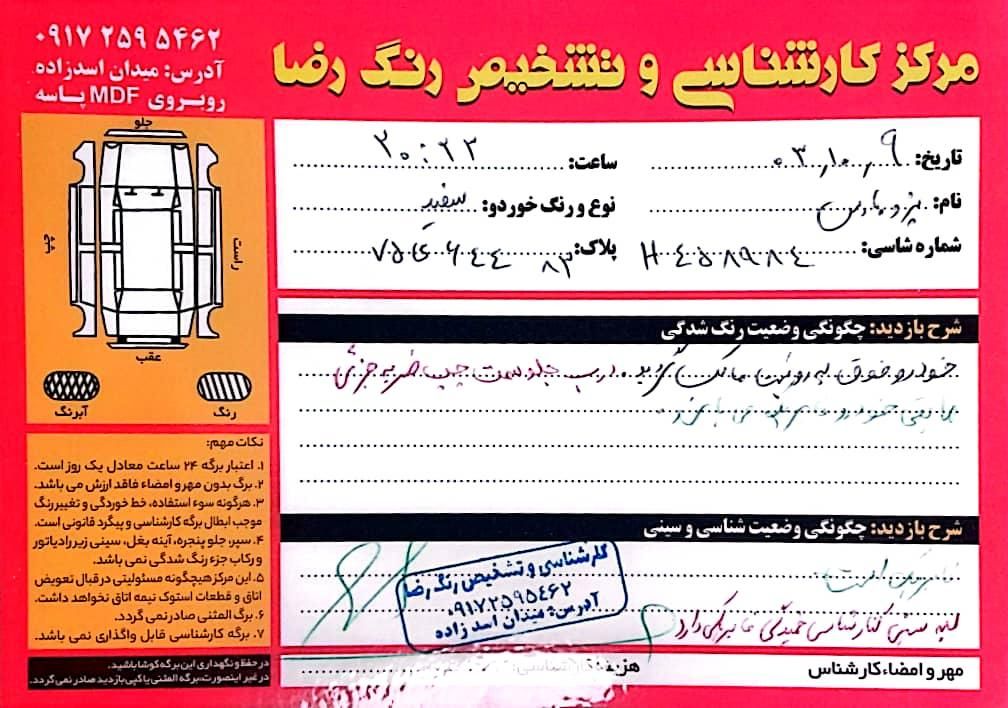 مرکز کارشناسی و تشخیص رنگ رضا
۰۹۱۷ ۲۵۹ ۵۴۶۲
آدرس: میدان اسدزاده
روبروی MDF پاسه
تاریخ: ۰۳،۱۰،۹
ساعت: ۲۰:۲۲
نام: پژو پارس
نوع و رنگ خودرو: سفید
شماره شاسی: H۴۵۸۹۸۴
پلاک: ۸۳
جلو
راست
چپ
عقب
رنگ
آبرنگ
شرح بازدید: چگونگی وضعیت رنگ شدگی
خودرو فوق به رویت مالک گردید. درب جلو سمت چپ ضربه جزئی
مابقی خودرو می باشد
شرح بازدید: چگونگی وضعیت شناسی و سینی
فابریک است
لبه سینی کنار شاسی خمیدگی فابریکی دارد
کارشناسی و تشخیص رنگ رضا
۰۹۱۷۲۵۹۵۴۶۲
آدرس: میدان اسدزاده
مهر و امضاء کارشناس
هزینه کارشناسی:
نکات مهم:
۱. اعتبار برگه ۲۴ ساعت معادل یک روز است.
۲. برگ بدون مهر و امضاء فاقد ارزش می باشد.
۳. هرگونه سوء استفاده، خط خوردگی و تغییر رنگ
موجب ابطال برگه کارشناسی و پیگرد قانونی است.
۴. سپر، جلو پنجره، آینه بغل، سینی زیر رادیاتور
و رکاب جزء رنگ شدگی نمی باشد.
۵. این مرکز هیچگونه مسئولیتی در قبال تعویض
اتاق و قطعات استوک نیمه اتاق نخواهد داشت.
۶. برگ المثنی صادر نمی گردد.
۷. برگه کارشناسی قابل واگذاری نمی باشد.
در حفظ و نگهداری این برگه کوشا باشید.
در غیر اینصورت، برگه المثنی یا کپی بازدید صادر نمی گردد.